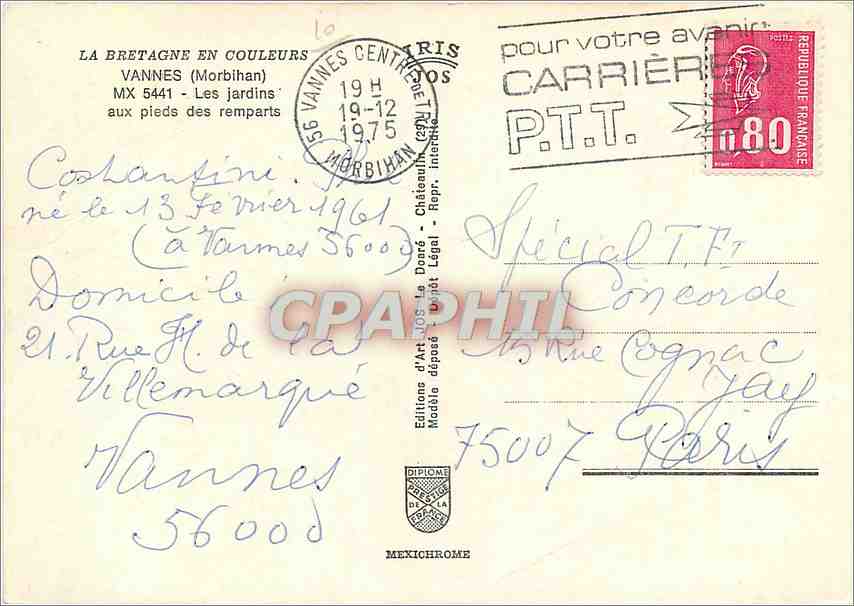 LA BRETAGNE EN COULEURS
VANNES (Morbihan)
MX 5441 - Les jardins
aux pieds des remparts
10
IRIS
JOS
56 VANNES CENTRE DE TRI
19 H
19-12
1975
MORBIHAN
pour votre avenir
CARRIÈRES
P.T.T.
POSTES
REPUBLIQUE FRANÇAISE
0,80
Costantini.
né le 13 Février 1961
(à Vannes 56000)
Domicile :
21. Rue H. de la
Villemarqué
Vannes
56000
Editions d'Art JOS Le Doaré - Châteaulin (29)
Modèle déposé - Dépôt Légal - Repr. interdite
Spécial T.F1
Concorde
15 Rue Cognac
Jay
75007 Paris
CPAPHIL
DIPLOME
PRESTIGE
DE LA
FRANCE
MEXICHROME